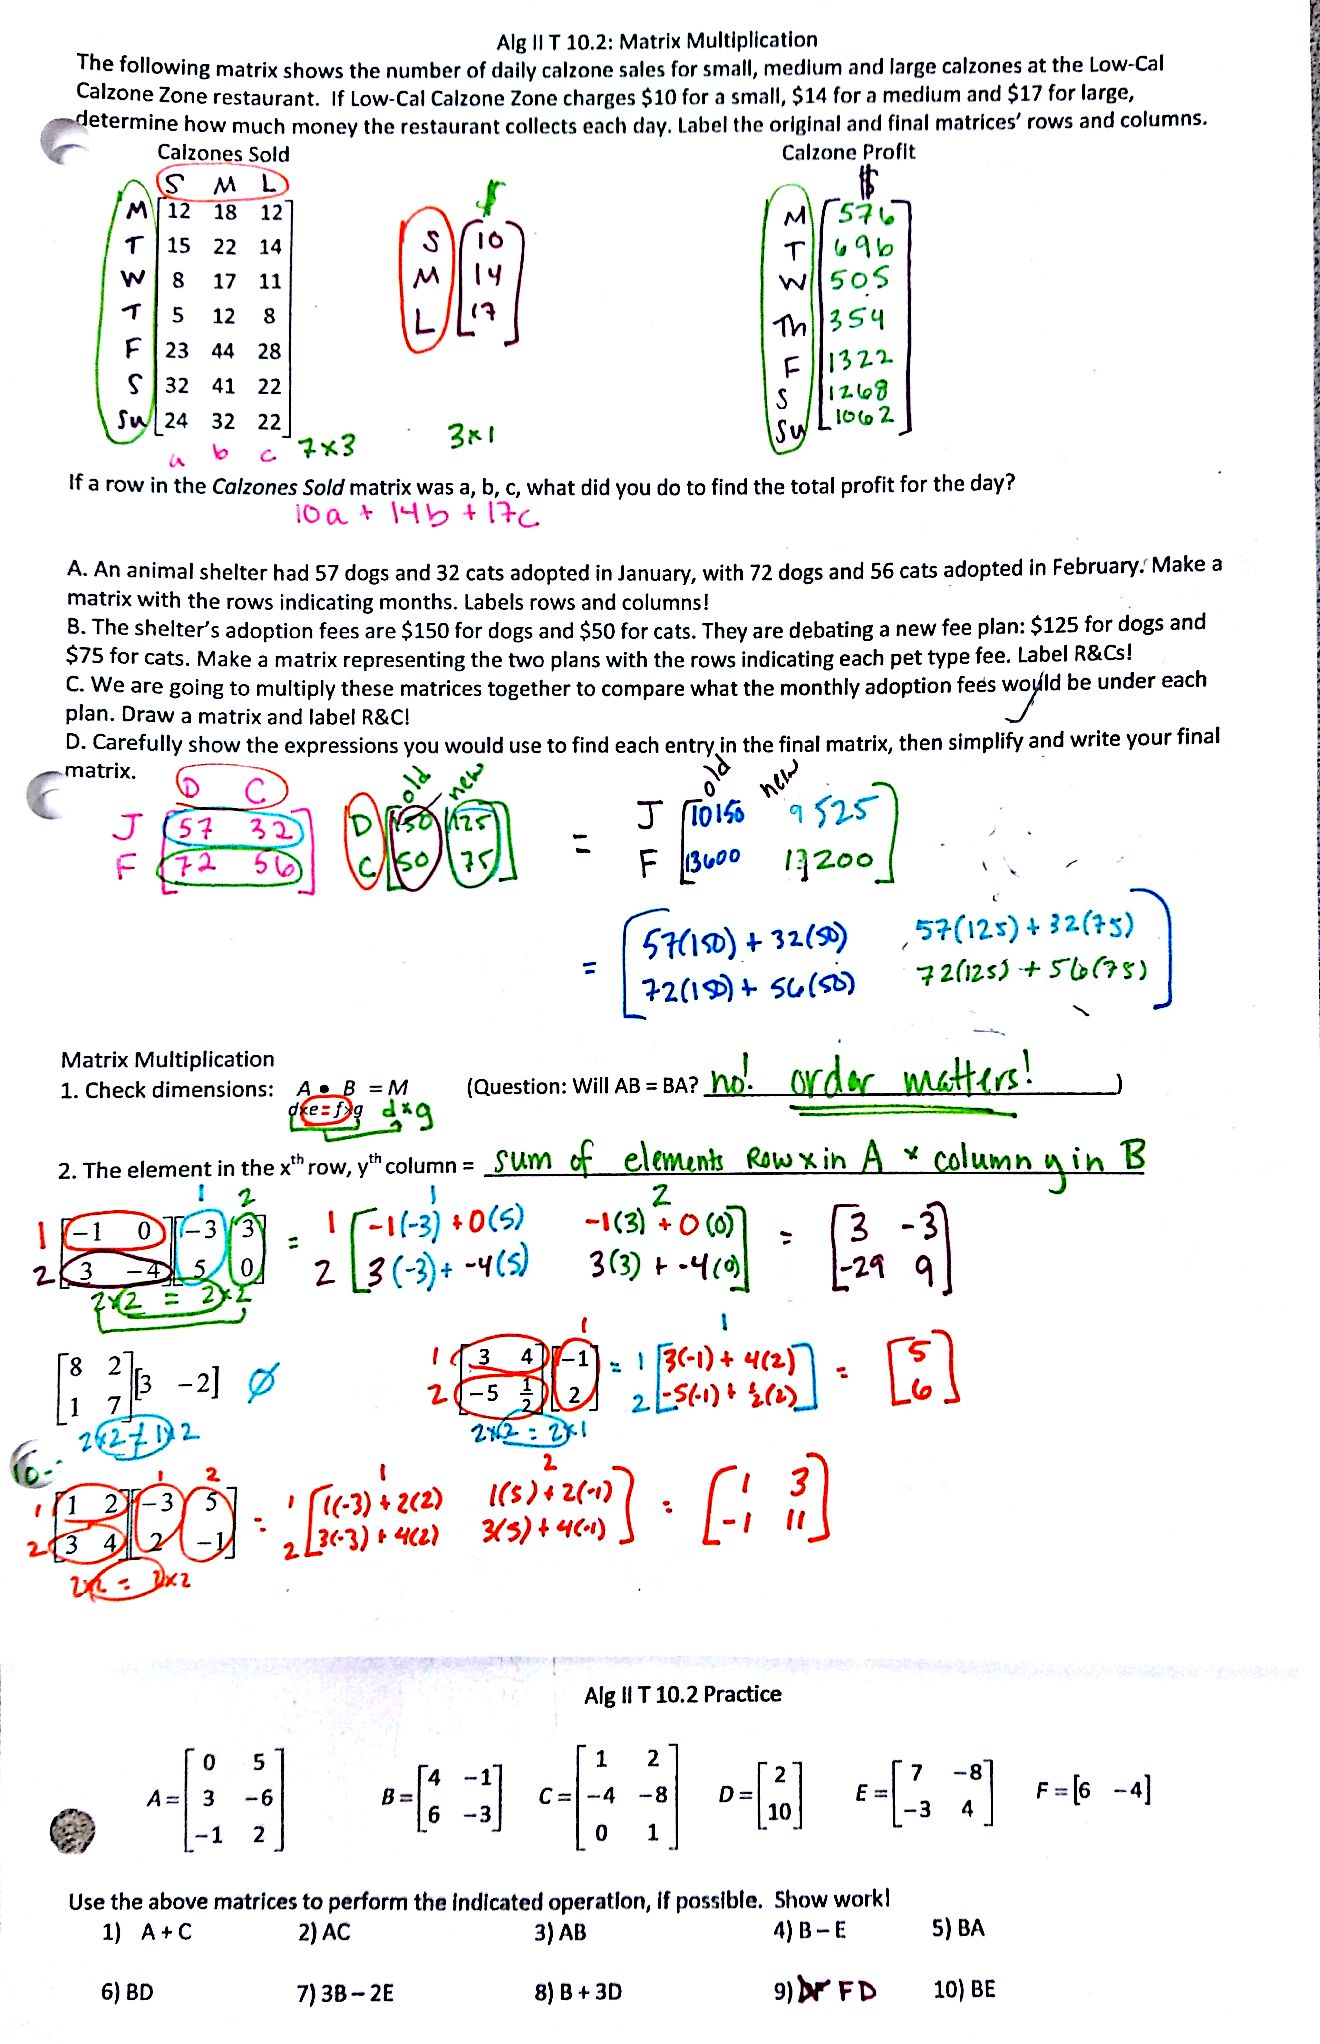 Alg II T 10.2: Matrix Multiplication
The following matrix shows the number of daily calzone sales for small, medium and large calzones at the Low-Cal
Calzone Zone restaurant. If Low-Cal Calzone Zone charges $10 for a small, $14 for a medium and $17 for large,
determine how much money the restaurant collects each day. Label the original and final matrices' rows and columns.
Calzones Sold Calzone Profit
S M L $ $
M 12 18 12 S 10 M 576
T 15 22 14 M 14 T 696
W 8 17 11 L 17 W 505
T 5 12 8 Th 354
F 23 44 28 F 1322
S 32 41 22 S 1268
Su 24 32 22 Su 1062
a b c 7x3 3x1
If a row in the Calzones Sold matrix was a, b, c, what did you do to find the total profit for the day?
10a + 14b + 17c
A. An animal shelter had 57 dogs and 32 cats adopted in January, with 72 dogs and 56 cats adopted in February. Make a
matrix with the rows indicating months. Labels rows and columns!
B. The shelter's adoption fees are $150 for dogs and $50 for cats. They are debating a new fee plan: $125 for dogs and
$75 for cats. Make a matrix representing the two plans with the rows indicating each pet type fee. Label R&Cs!
C. We are going to multiply these matrices together to compare what the monthly adoption fees would be under each
plan. Draw a matrix and label R&C!
D. Carefully show the expressions you would use to find each entry in the final matrix, then simplify and write your final
matrix.
D C old new old new
J [57 32] D [150 125] = J [10150 9525]
F [72 56] C [50 75] F [13600 13200]
= [57(150) + 32(50) 57(125) + 32(75)]
[72(150) + 56(50) 72(125) + 56(75)]
Matrix Multiplication
1. Check dimensions: A • B = M (Question: Will AB = BA? no! order matters! )
dxe = fxg dxg
2. The element in the xth row, yth column = sum of elements Row x in A * column y in B
1 2 1 2
1 [-1 0] [-3 3] = 1 [-1(-3) + 0(5) -1(3) + 0(0)] = [3 -3]
2 [3 -4] [5 0] 2 [3(-3) + -4(5) 3(3) + -4(0)] [-29 9]
2x2 = 2x2
1 1
[8 2] [3 -2] ∅ 1 [3 4] [-1] = 1 [3(-1) + 4(2)] = [5]
[1 7] 2 [-5 1/2] [2] 2 [-5(-1) + 1/2(2)] [6]
2x2 ≠ 1x2 2x2 = 2x1
1 2 1 2
1 [1 2] [-3 5] = 1 [1(-3) + 2(2) 1(5) + 2(-1)] = [1 3]
2 [3 4] [2 -1] 2 [3(-3) + 4(2) 3(5) + 4(-1)] [-1 11]
2x2 = 2x2
Alg II T 10.2 Practice
A = [0 5; 3 -6; -1 2] B = [4 -1; 6 -3] C = [1 2; -4 -8; 0 1] D = [2; 10] E = [7 -8; -3 4] F = [6 -4]
Use the above matrices to perform the indicated operation, if possible. Show work!
1) A + C 2) AC 3) AB 4) B – E 5) BA
6) BD 7) 3B – 2E 8) B + 3D 9) FD 10) BE